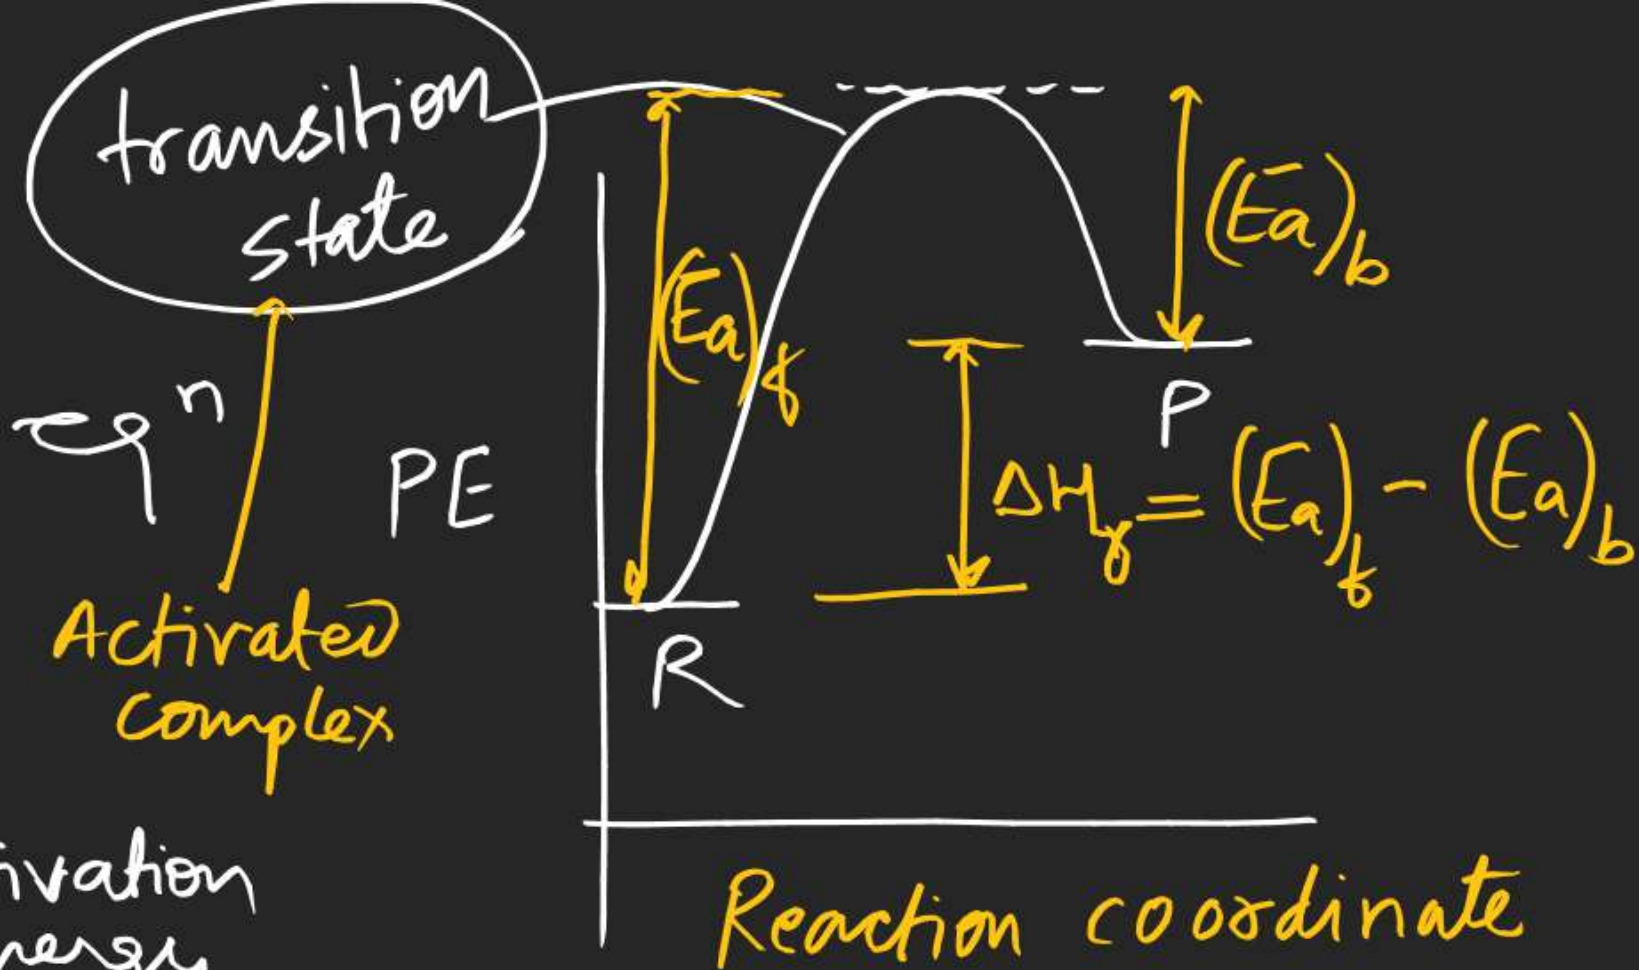 transition
state
(Ea)f
(Ea)b
PE
P
ΔHr = (Ea)f - (Ea)b
Activated
complex
R
Reaction coordinate